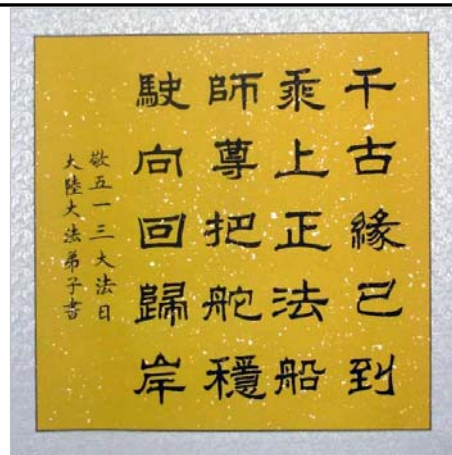 千古緣已到
乘上正法船
師尊把舵穩
駛向回歸岸
敬五一三大法日
大陸大法弟子書